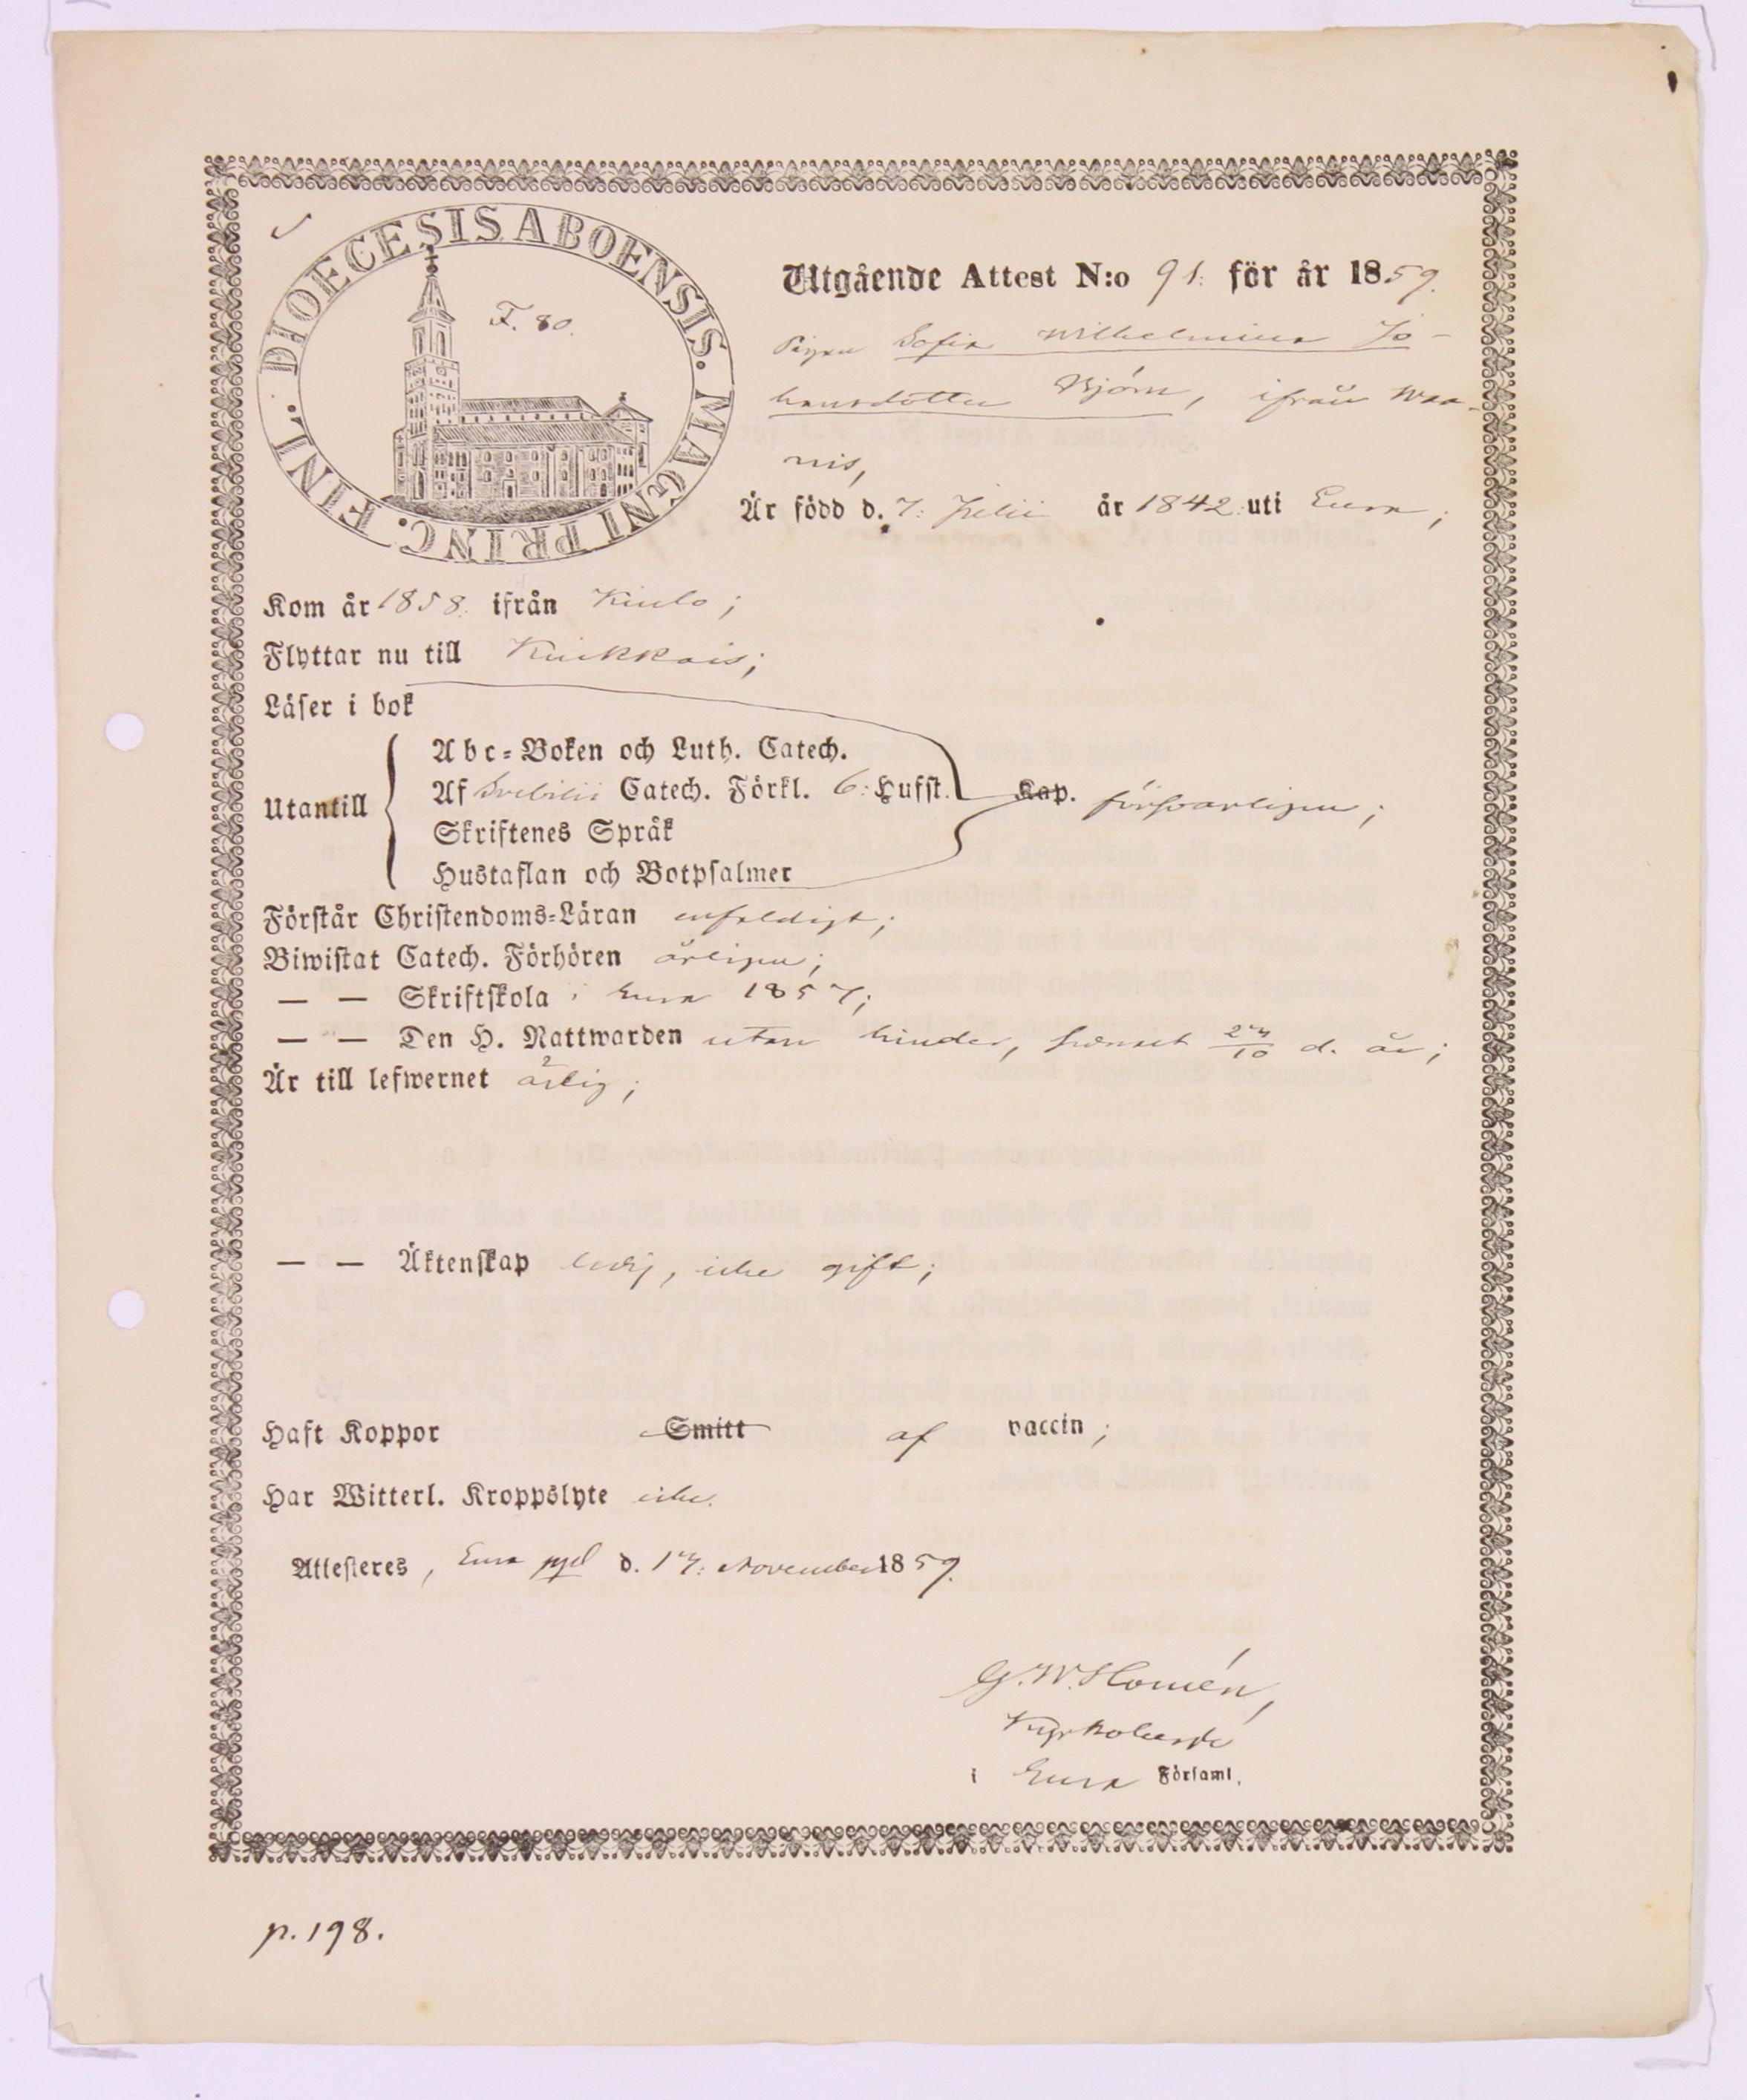 DIOECESIS ABOENSIS. MAGNI PRINC. FINL.
F. 80.
Utgående Attest N:o 91. för år 1859.
Pigan Sofia Wilhelmina Jo-
hansdotter Björn, ifrån Waa-
nis,
Är född d. 7: Julii år 1842. uti Eura;
Kom år 1858. ifrån Kiulo;
Flyttar nu till Kiukkais;
Läser i bok
Utantill
Abc-Boken och Luth. Catech.
Af Svebilii Catech. Förkl. 6: Hufst. Kap. försvarligen;
Skriftenes Språk
Hustaflan och Botpsalmer
Förstår Christendoms-Läran enfaldigt;
Biwistat Catech. Förhören årligen;
— — Skriftskola i Eura 1857;
— — Den H. Nattwarden utan hinder, senast d. år;
Är till lefwernet ärlig;
— — Äktenskap ledig, icke gift;
Haft Koppor Smitt af vaccin;
Har Witterl. Kroppslyte icke.
Attesteres, Eura d. 17: November 1859.
G. W. Homén,
Kyrkoherde
i Eura Församl.
p. 198.